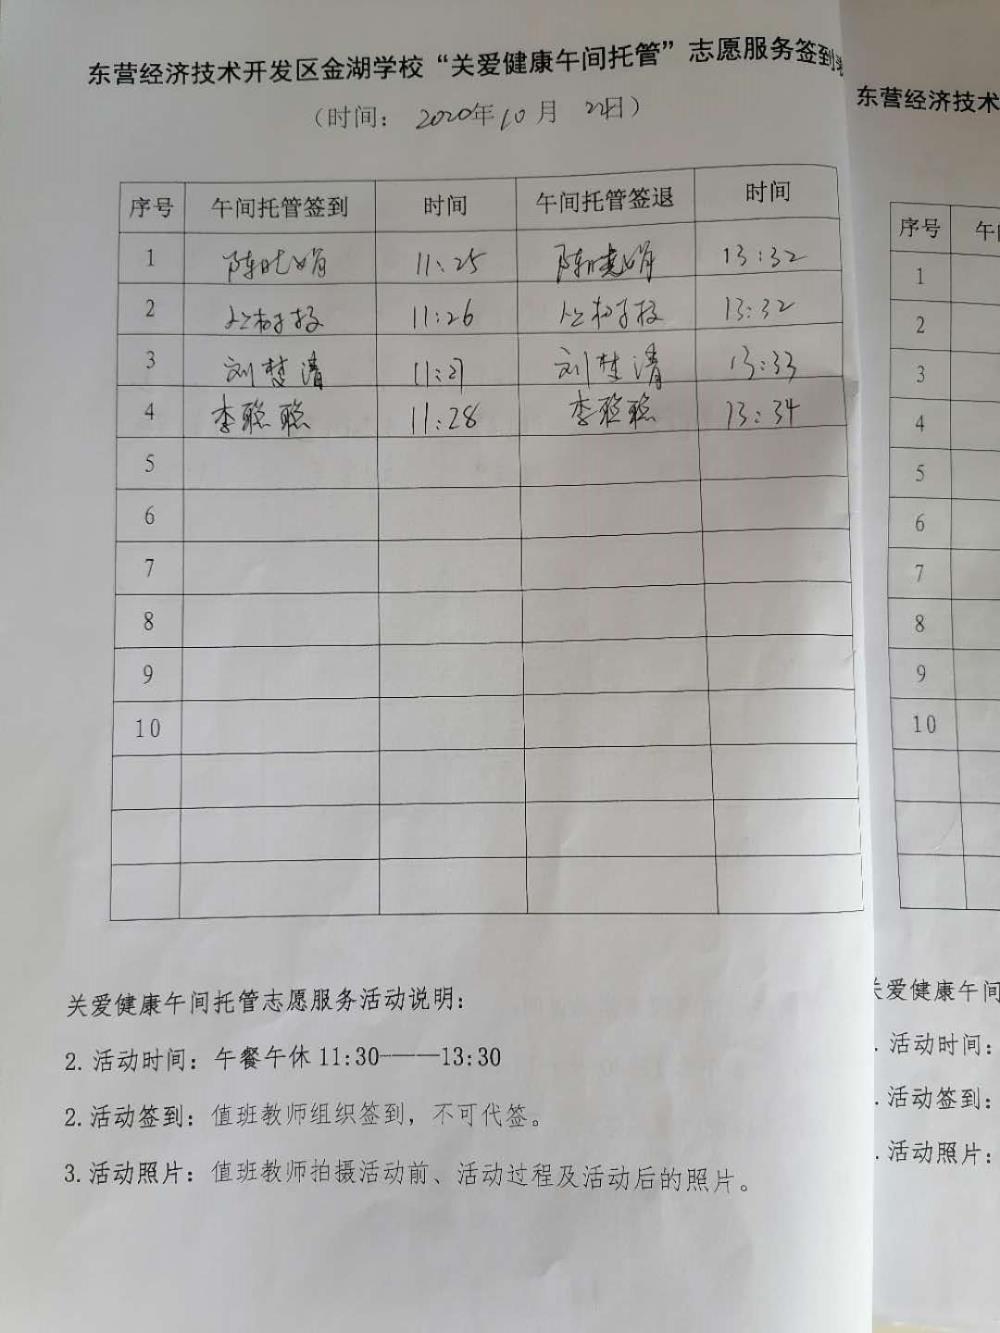 东营经济技术开发区金湖学校“关爱健康午间托管”志愿服务签到表
（时间： 2020年10月 22日）
序号 午间托管签到 时间 午间托管签退 时间
1 陈晓娟 11:25 陈晓娟 13:32
2 11:26 13:32
3 刘楚清 11:27 刘楚清 13:33
4 李聪聪 11:28 李聪聪 13:34
5
6
7
8
9
10
关爱健康午间托管志愿服务活动说明：
2.活动时间：午餐午休 11:30——13:30
2.活动签到：值班教师组织签到，不可代签。
3.活动照片：值班教师拍摄活动前、活动过程及活动后的照片。
东营经济技术
序号 午间
1
2
3
4
5
6
7
8
9
10
关爱健康午间
.活动时间：
.活动签到：
.活动照片：